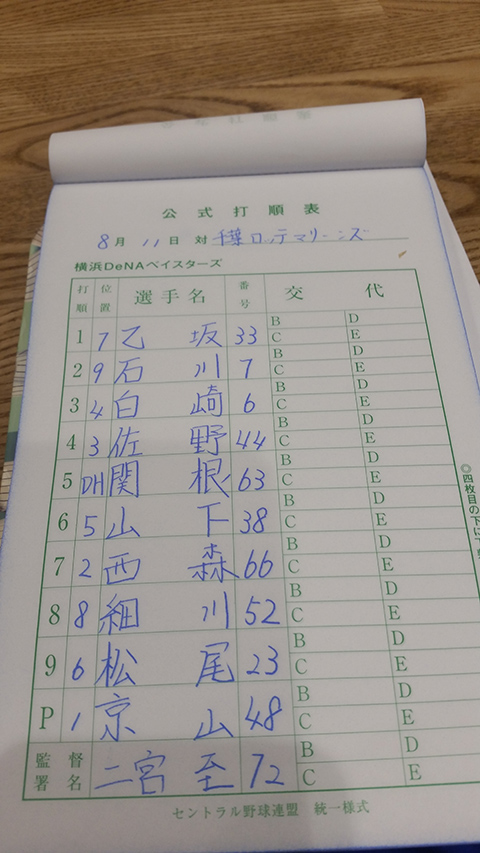 公式打順表
8月11日 対 千葉ロッテマリーンズ
横浜DeNAベイスターズ
打順 位置 選手名 番号 交代
1 7 乙坂 33 B C D E
2 9 石川 7 B C D E
3 4 白崎 6 B C D E
4 3 佐野 44 B C D E
5 DH 関根 63 B C D E
6 5 山下 38 B C D E
7 2 西森 66 B C D E
8 8 細川 52 B C D E
9 6 松尾 23 B C D E
P 1 京山 48 B C D E
監督署名 二宮至 72 B C D E
セントラル野球連盟 統一様式
◎四枚目の下に